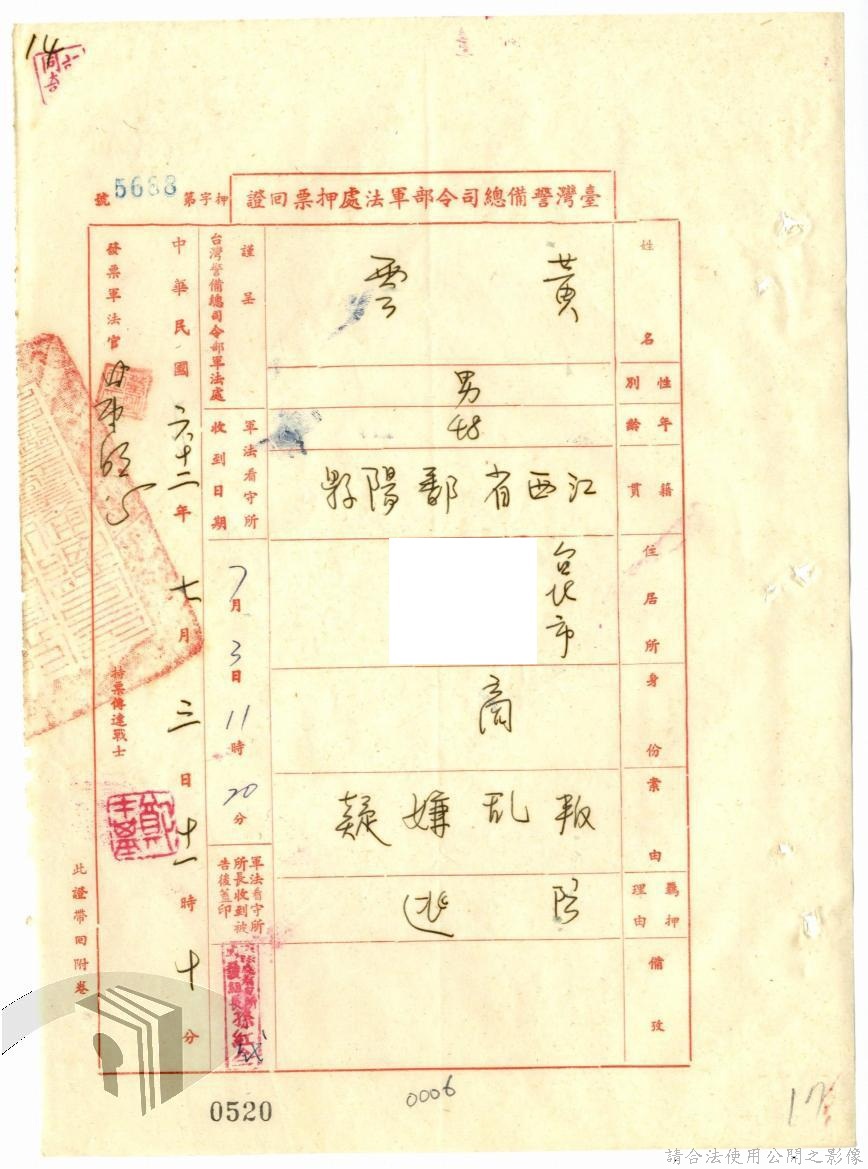 14
臺灣警備總司令部軍法處押票回證
押字第5688號
姓名
黃雲
性別
男
年齡
48
籍貫
江西省鄱陽縣
住居所
台北市
身份
商
案由
叛乱嫌疑
羈押理由
防逃
備攷
謹呈
台灣警備總司令部軍法處
軍法看守所收到日期
7月3日11時20分
軍法看守所所長收到被告後蓋印
中華民國六十二年七月三日十一時十分
發票軍法官
持票傳達戰士
此證帶回附卷
0520
0006
17
請合法使用公開之影像